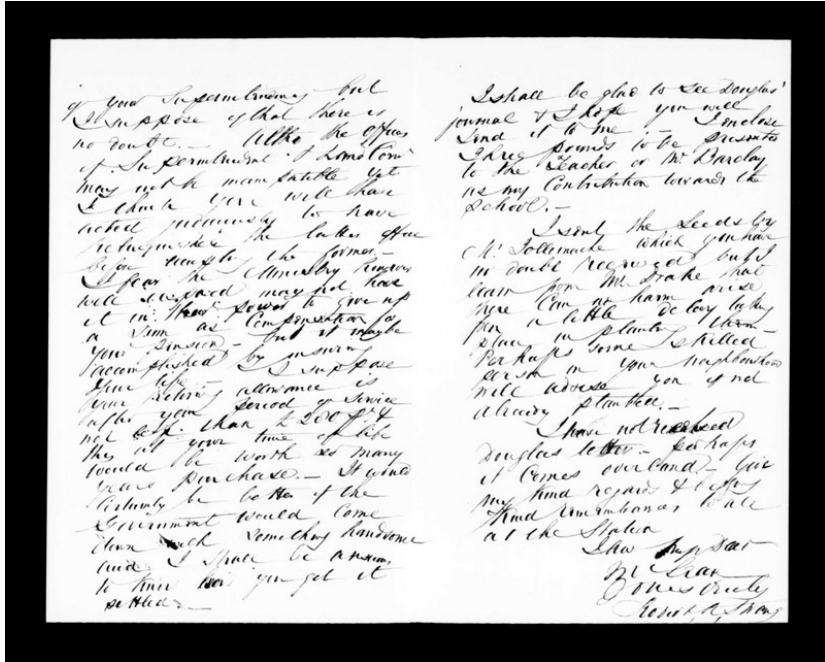 of your Superintendency but
I suppose of that there is
no doubt. — Altho the offices
of Superintendent & Land Comr
may not be incompatible yet
I think you will have
acted judiciously to have
relinquished the latter office
before the former —
I fear the Ministry
will may not have
it in their power to give up
a Sum as Compensation for
your pension — but it may be
accomplished by insuring
your life. — I suppose
your retiring allowance is
after your period of Service
not less than £200 pr. &
this at your time of life
would be worth so many
years purchase. — It would
Certainly be better if the
Government would Come
down with Something handsome
and I shall be anxious
to know how you get it
settled —
I shall be glad to See Douglas'
journal & I hope you will
Send it to me. — I enclose
Three pounds to be presented
to the Teacher or Mr Barclay
as my Contribution towards the
School. —
I sent the Seeds by
Mr. Tollemache which you have
no doubt received but I
learn from Mr. Drake that
there Can no harm arise
from a little delay taking
place in planting them —
Perhaps some skilled
person in your neighbourhood
will advise you if not
already planted. —
I have not received
Douglas letter — perhaps
it Comes overland — Give
my Kind regards &
Kind remembrances to all
at the Station
I am My Dear
McLean
Yours truly
Robert R. Strang